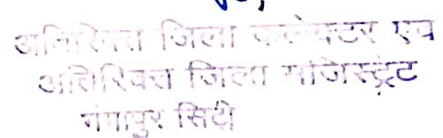 अतिरिक्त जिला कलेक्टर एवं
अतिरिक्त जिला मजिस्ट्रेट
गंगापुर सिटी